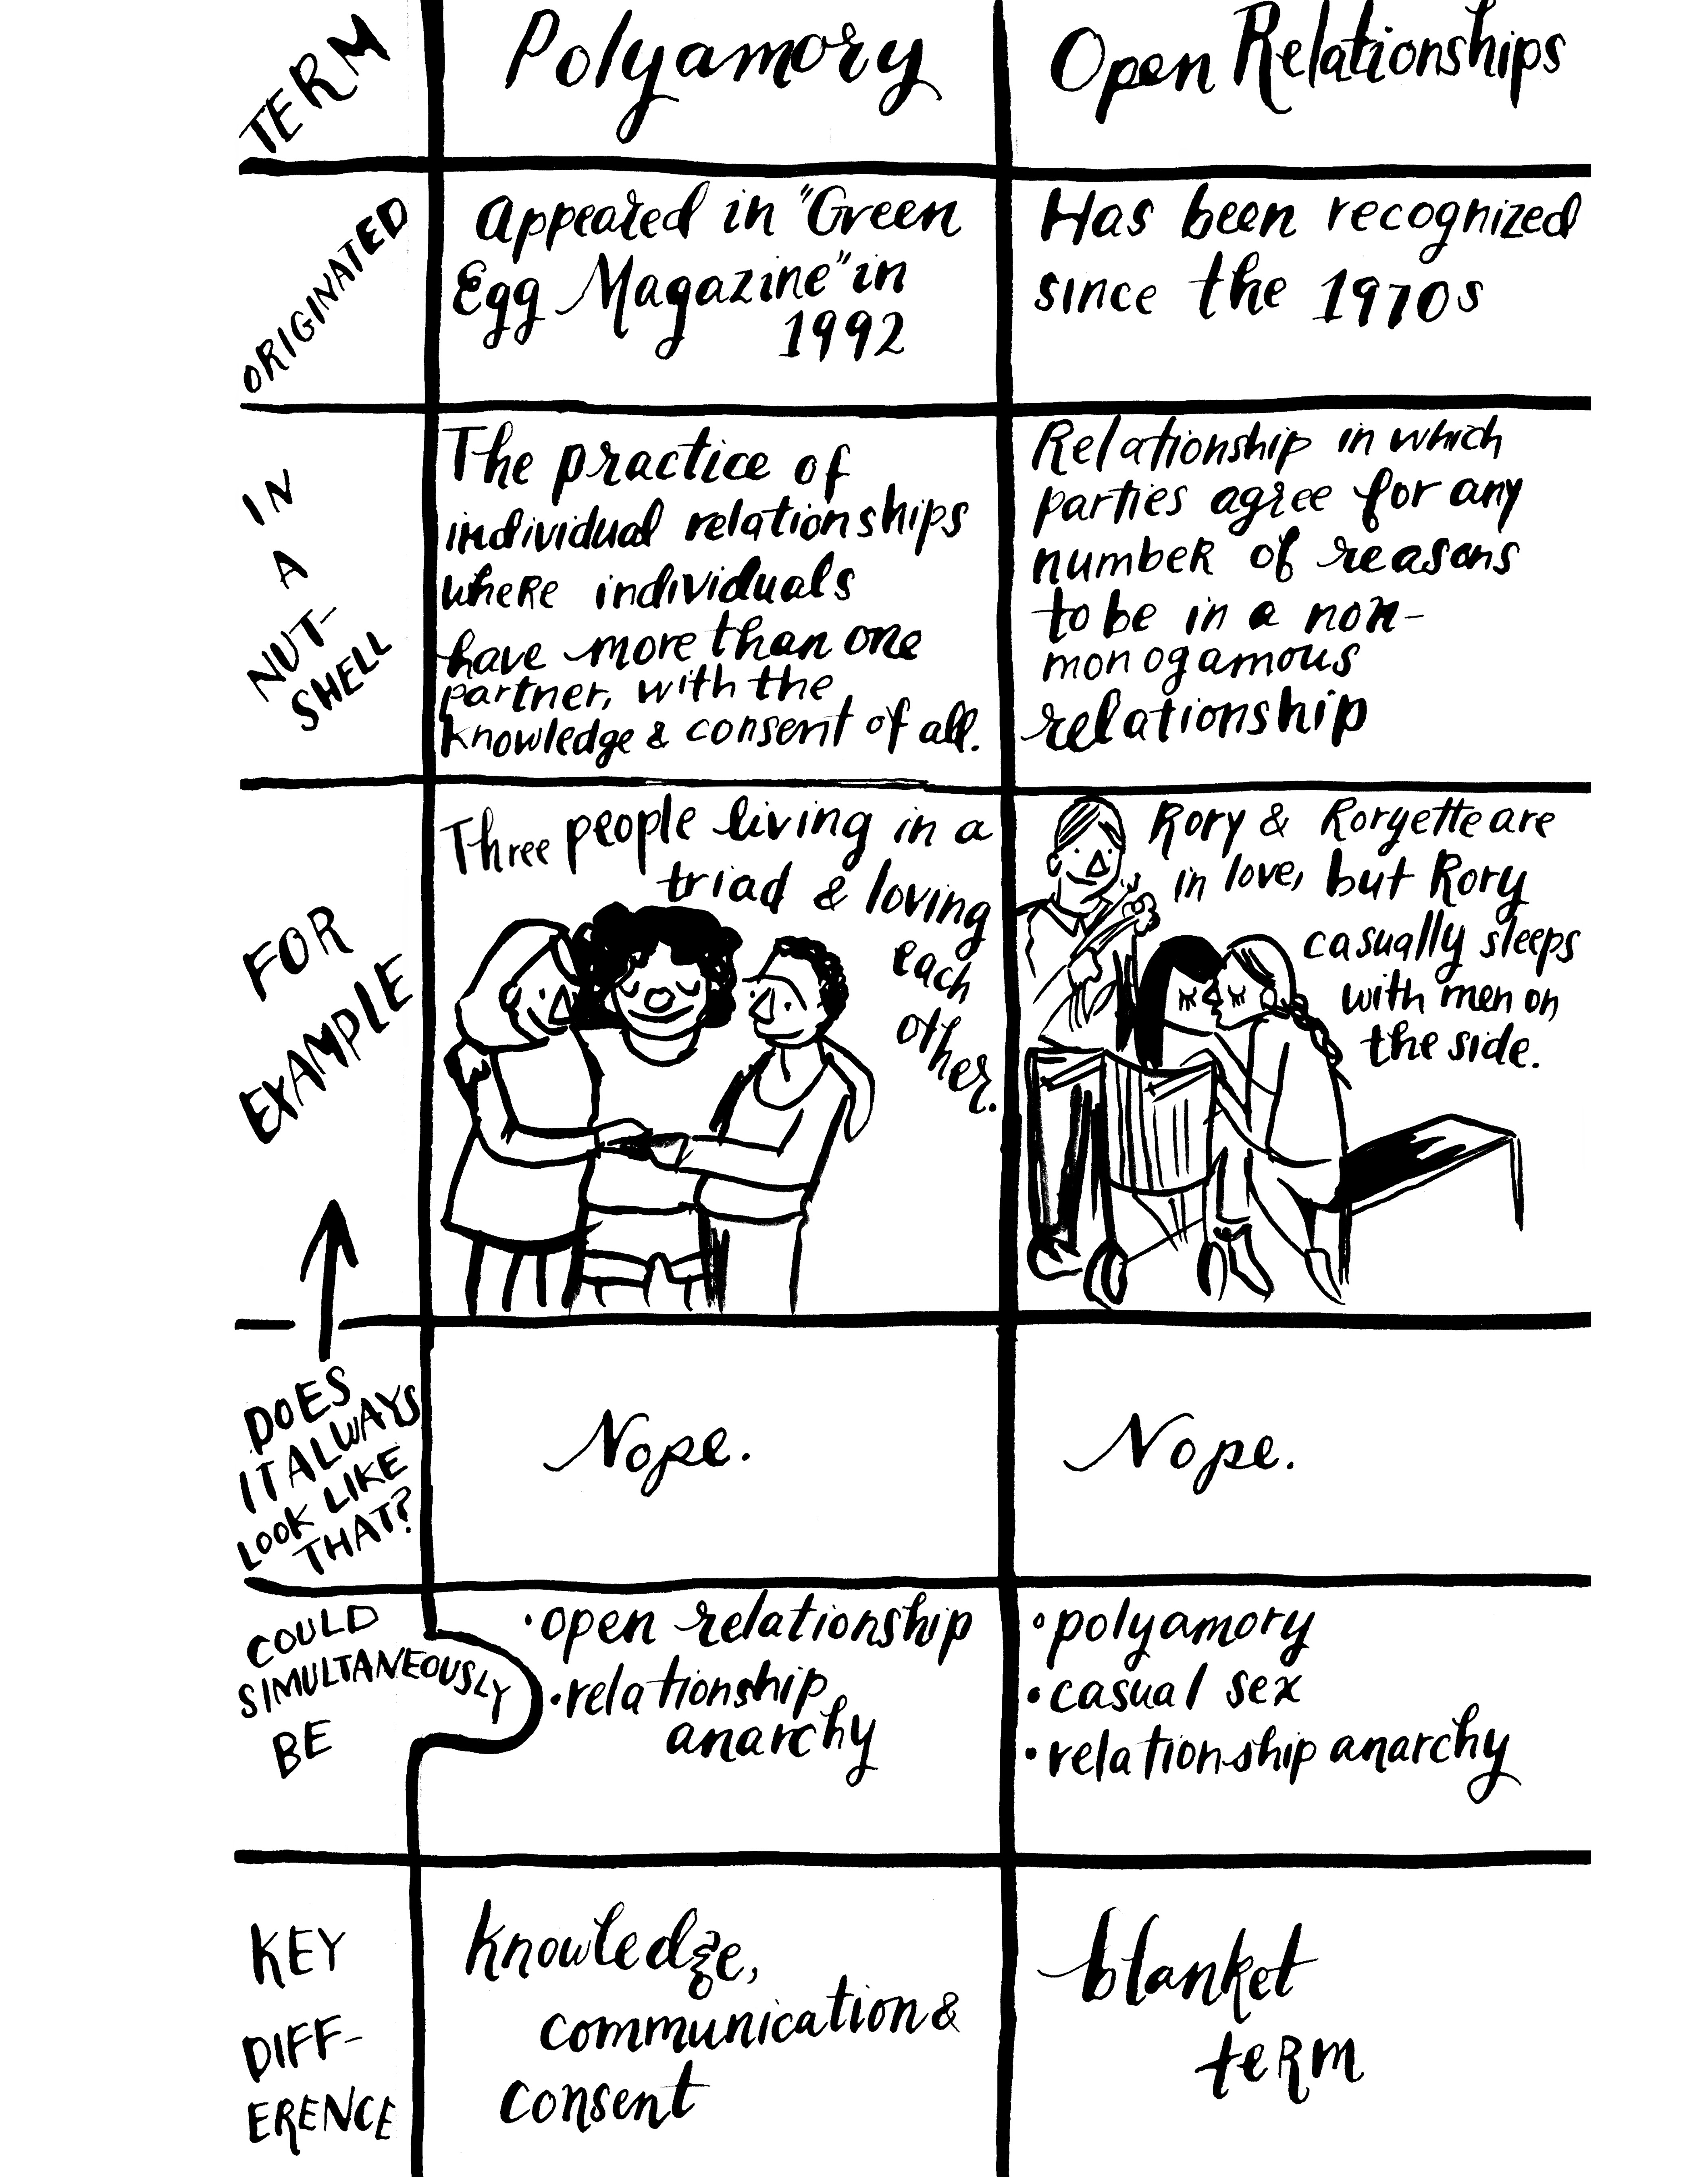 TERM
Polyamory
Open Relationships
ORIGINATED
Appeared in "Green
Egg Magazine" in
1992
Has been recognized
since the 1970s
IN
A
NUT-
SHELL
The practice of
individual relationships
where individuals
have more than one
partner, with the
knowledge & consent of all.
Relationship in which
parties agree for any
number of reasons
to be in a non-
monogamous
relationship
FOR
EXAMPLE
Three people living in a
triad & loving
each
other.
Rory & Roryette are
in love, but Rory
casually sleeps
with men on
the side.
DOES
IT ALWAYS
LOOK LIKE
THAT?
Nope.
Nope.
COULD
SIMULTANEOUSLY
BE
• open relationship
• relationship
anarchy
• polyamory
• casual sex
• relationship anarchy
KEY
DIFF-
ERENCE
knowledge,
communication &
consent
blanket
term